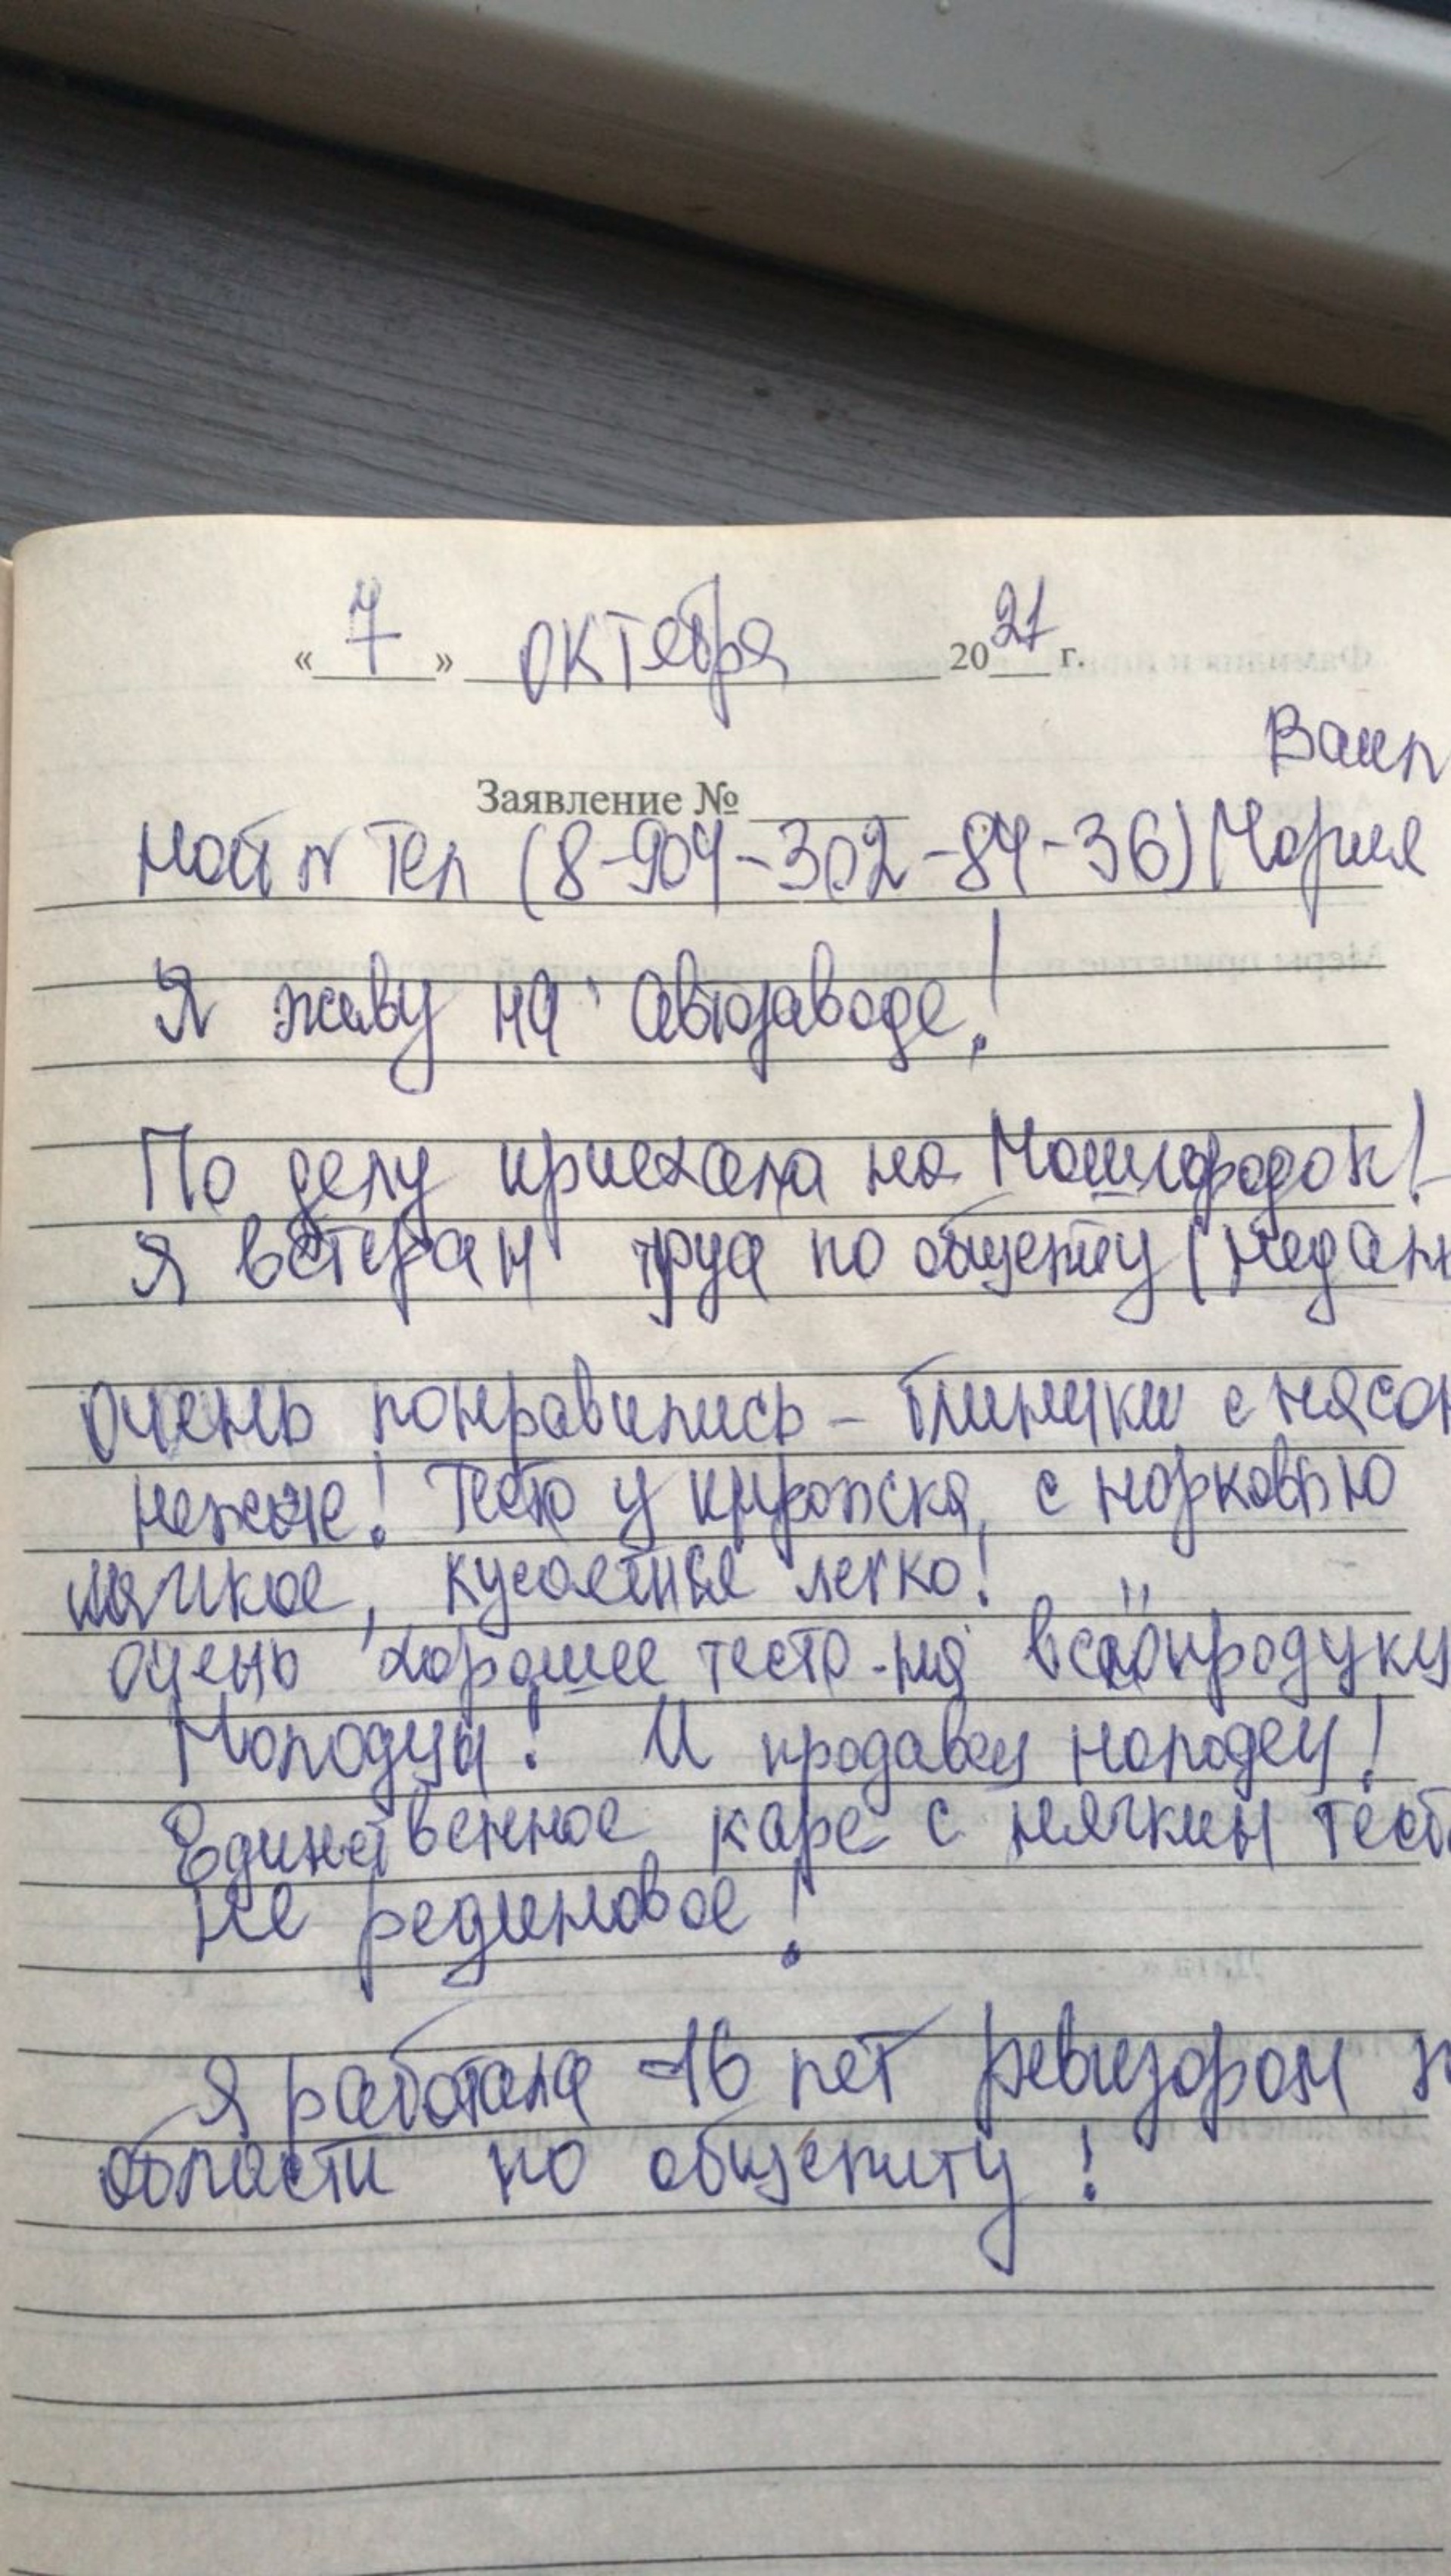 « 7 » октября 2021 г.
Заявление №
Мой № тел (8-904-302-84-36) Мария
Я живу на Автозаводе!
По делу приехала на Машгородок!
Я ветеран труа по общепиту (медал
Очень понравились – блинчики с мясом
нежные! Тесто у пирожка, с морковью
мягкое, кусается легко!
Очень хорошее тесто - на всю продукц
Молодцы! И продавец молодец!
Единственное кафе с мягким тест
не резиновое!
Я работала -16 лет ревизором п
области по общепиту!